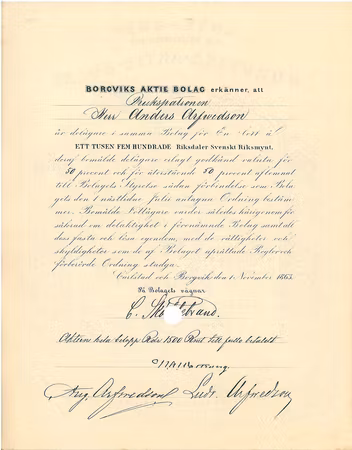 BORGVIKS AKTIE BOLAG erkänner, att
Brukspatronen
Herr Anders Arfwedson
är delägare i samma Bolag för En lott å
ETT TUSEN FEM HUNDRADE Riksdaler Svenskt Riksmynt,
deraf bemälde delägare erlagt godkänd valuta för
50 procent och för återstående 50 procent aflemnat
till Bolagets Styrelse sådan förbindelse som Bola
gets den 1 nästlidne Julii antagna Ordning bestäm
mer. Bemälde lottägare varder således härigenom för
säkrad om delaktighet i förenämnde Bolag samt all
dess fasta och lösa egendom, med de rättigheter och
skyldigheter som de af Bolaget upprättade Regler och
förberörde Ordning stadga.
Carlstad och Borgvik den 1 November 1865.
På Bolagets vägnar
C.
Aktiens hela belopp Rdr 1500 Rmt till fullo betaldt
Aug. Arfwedson Ludv. Arfwedson